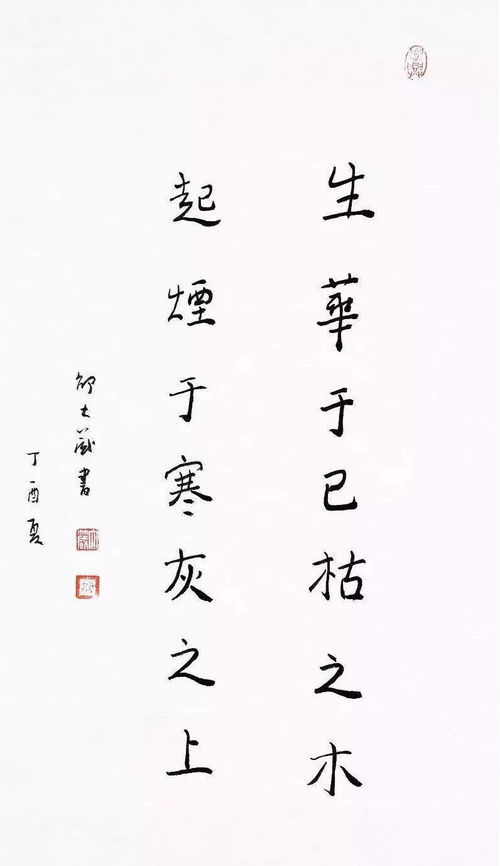 生華于已枯之木
起煙于寒灰之上
邰士箴書
丁酉夏